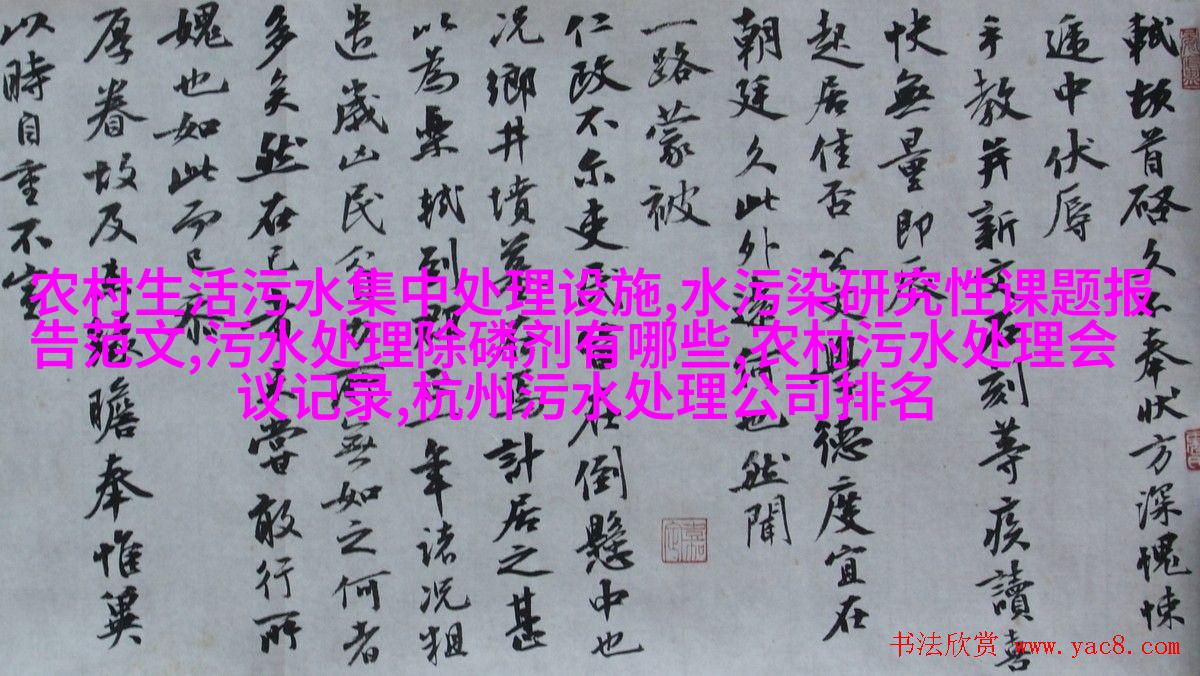 軾頓首啓久不奉狀方深愧悚
遞中伏辱
手教并新文石刻等疾讀喜
快無量即辰
起居佳否
德度宜在
朝廷久此外
何也然聞
一路蒙被
仁政不尔吏民皆在倒懸中也
況鄉井墳墓
計居之甚
以為樂軾到郡
年諸況粗
遣歲凶民
無如之何者
多矣然在己者
又當敢行所
愧也如此而已
厚眷故及
瞻奉惟冀
以時自重不宣
农村生活污水集中处理设施,水污染研究性课题报
告范文,污水处理除磷剂有哪些,农村污水处理会
议记录,杭州污水处理公司排名
书法欣赏 www.yac8.com